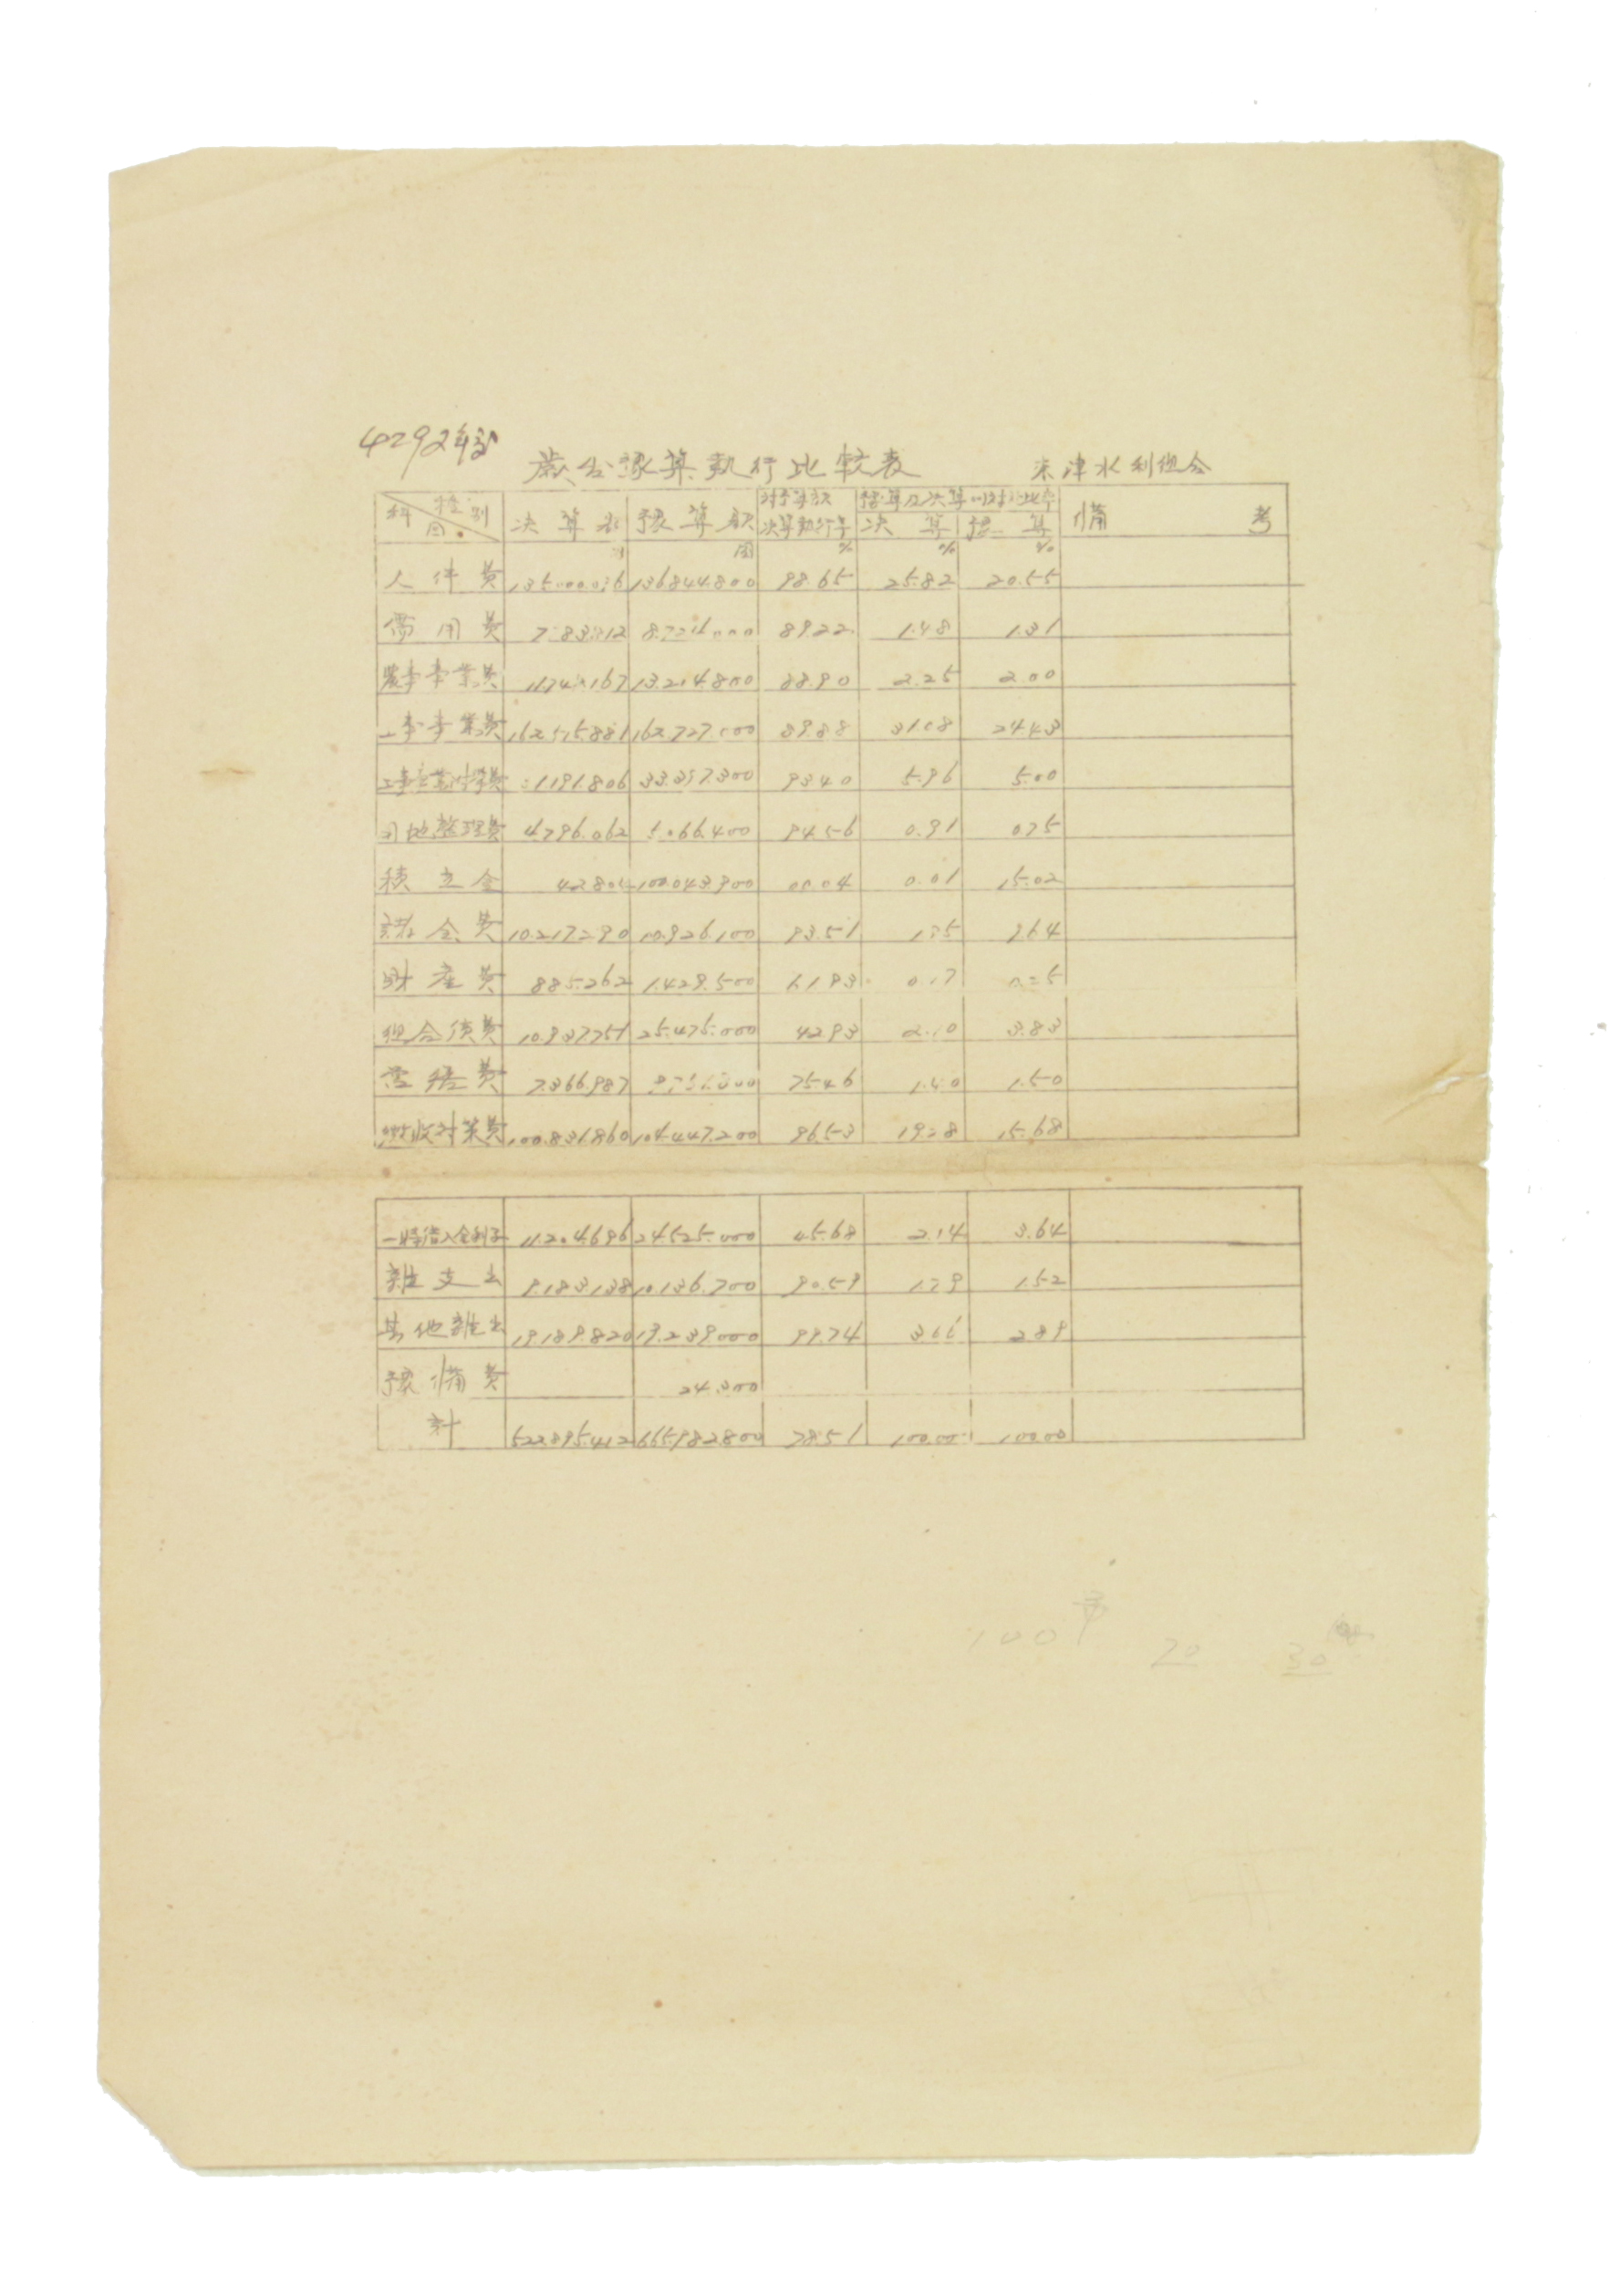 4292年度
歲出豫算執行比較表 東津水利組合
科目 種別 決算額 豫算額 對豫算額決算執行率 豫算及決算의對한比率 決算 豫算 備考
% % %
人件費 135.000.036 136.844.800 98.65 25.82 20.55
需用費 8.726.000 89.22 1.48 1.31
農事事業費 13.214.800 88.90 2.25 2.00
工事事業費 162.727.000 31.08 24.43
33.397.300 93.40 5.96 5.00
4.796.062 5.066.400 94.56 0.91 0.75
積立金 100.043.900 00.04 0.01 15.02
10.217.290 10.926.100 93.51 1.95 1.64
財産費 885.262 1.429.500 61.93 0.17
組合債費 10.937.751 25.475.000 42.93 2.10 3.83
7.366.987 75.46 1.40 1.50
對策費 100.831.860 104.447.200 96.53 19.28 15.68
一時借入金利子 11.204.696 24.525.000 45.68 2.14 3.64
雜支出 9.183.138 10.136.700 90.59 1.79 1.52
其他雜出 19.189.820 19.239.000 99.74 3.66 2.89
豫備費 24.300
計 522.895.412 665.982.800 78.51 100.00 100.00
100
70 30